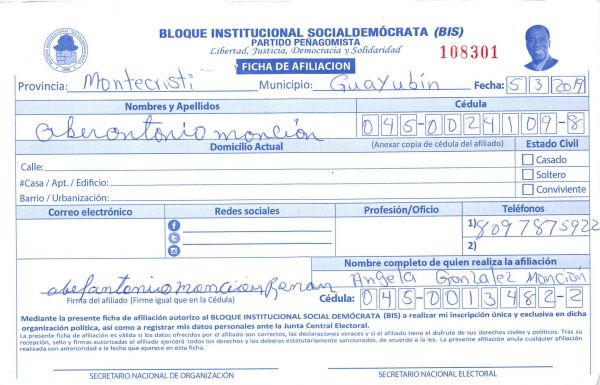 BLOQUE INSTITUCIONAL SOCIALDEMÓCRATA (BIS)
PARTIDO PEÑAGOMISTA
Libertad, Justicia, Democracia y Solidaridad
108301
FICHA DE AFILIACION
Provincia: Montecristi Municipio: Guayubín Fecha: 5 3 2019
Nombres y Apellidos Cédula
aberantonio monción 045-0024109-8
Domicilio Actual (Anexar copia de cédula del afiliado) Estado Civil
Calle: Casado
#Casa / Apt. / Edificio: Soltero
Barrio / Urbanización: Conviviente
Correo electrónico Redes sociales Profesión/Oficio Teléfonos
1) 8097875922
2)
Nombre completo de quien realiza la afiliación
abelantonio moncion Angela Gonzalez Monción
Firma del afiliado (Firme igual que en la Cédula) Cédula: 045-0013482-2
Mediante la presente ficha de afiliación autorizo al BLOQUE INSTITUCIONAL SOCIAL DEMÓCRATA (BIS) a realizar mi inscripción única y exclusiva en dicha
organización política, así como a registrar mis datos personales ante la Junta Central Electoral.
La presente ficha de afiliación es válida si los datos ofrecidos por el afiliado son correctos, las declaraciones veraces y si el afiliado tiene el disfrute de sus derechos civiles y políticos. Tras su
recepción, sello y firmas autorizadas el afiliado ejercerá todos los derechos y los deberes estatutariamente sancionados, de acuerdo a la ley. La presente afiliación anula cualquier afiliación
realizada con anterioridad a la fecha que aparece en esta ficha.
SECRETARIO NACIONAL DE ORGANIZACIÓN SECRETARIO NACIONAL ELECTORAL